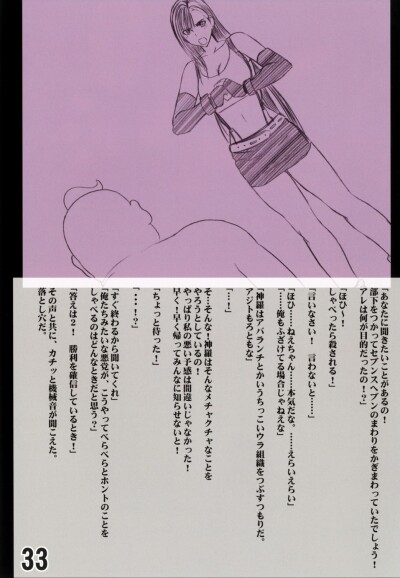 「あなたに聞きたいことがあるの！
部下をつかってセブンスヘブンのまわりをかぎまわっていたでしょう！
アレは何が目的だったの！？」
「ほひ～！
しゃべったら殺される！」
「言いなさい！　言わないと……」
「ほひ……ねえちゃん……本気だな。……えらいえらい」
「……俺もふざけてる場合じゃねえな」
「神羅はアバランチとかいうちっこいウラ組織をつぶすつもりだ。
アジトもろともな」
「……」
そ…そんな！神羅はそんなメチャクチャなことを
やろうとしているの！
やっぱり私の悪い予感は間違いじゃなかった！
早く！早く帰ってみんなに知らせないと！
「ちょっと待った！」
「・・・！？」
「すぐ終わるから聞いてくれ」
「俺たちみたいな悪党が、こうやってべらべらとホントのことを
しゃべるのはどんなときだと思う？」
「答えは２！　勝利を確信しているとき！」
その声と共に、カチッと機械音が聞こえた。
落とし穴だ。
33